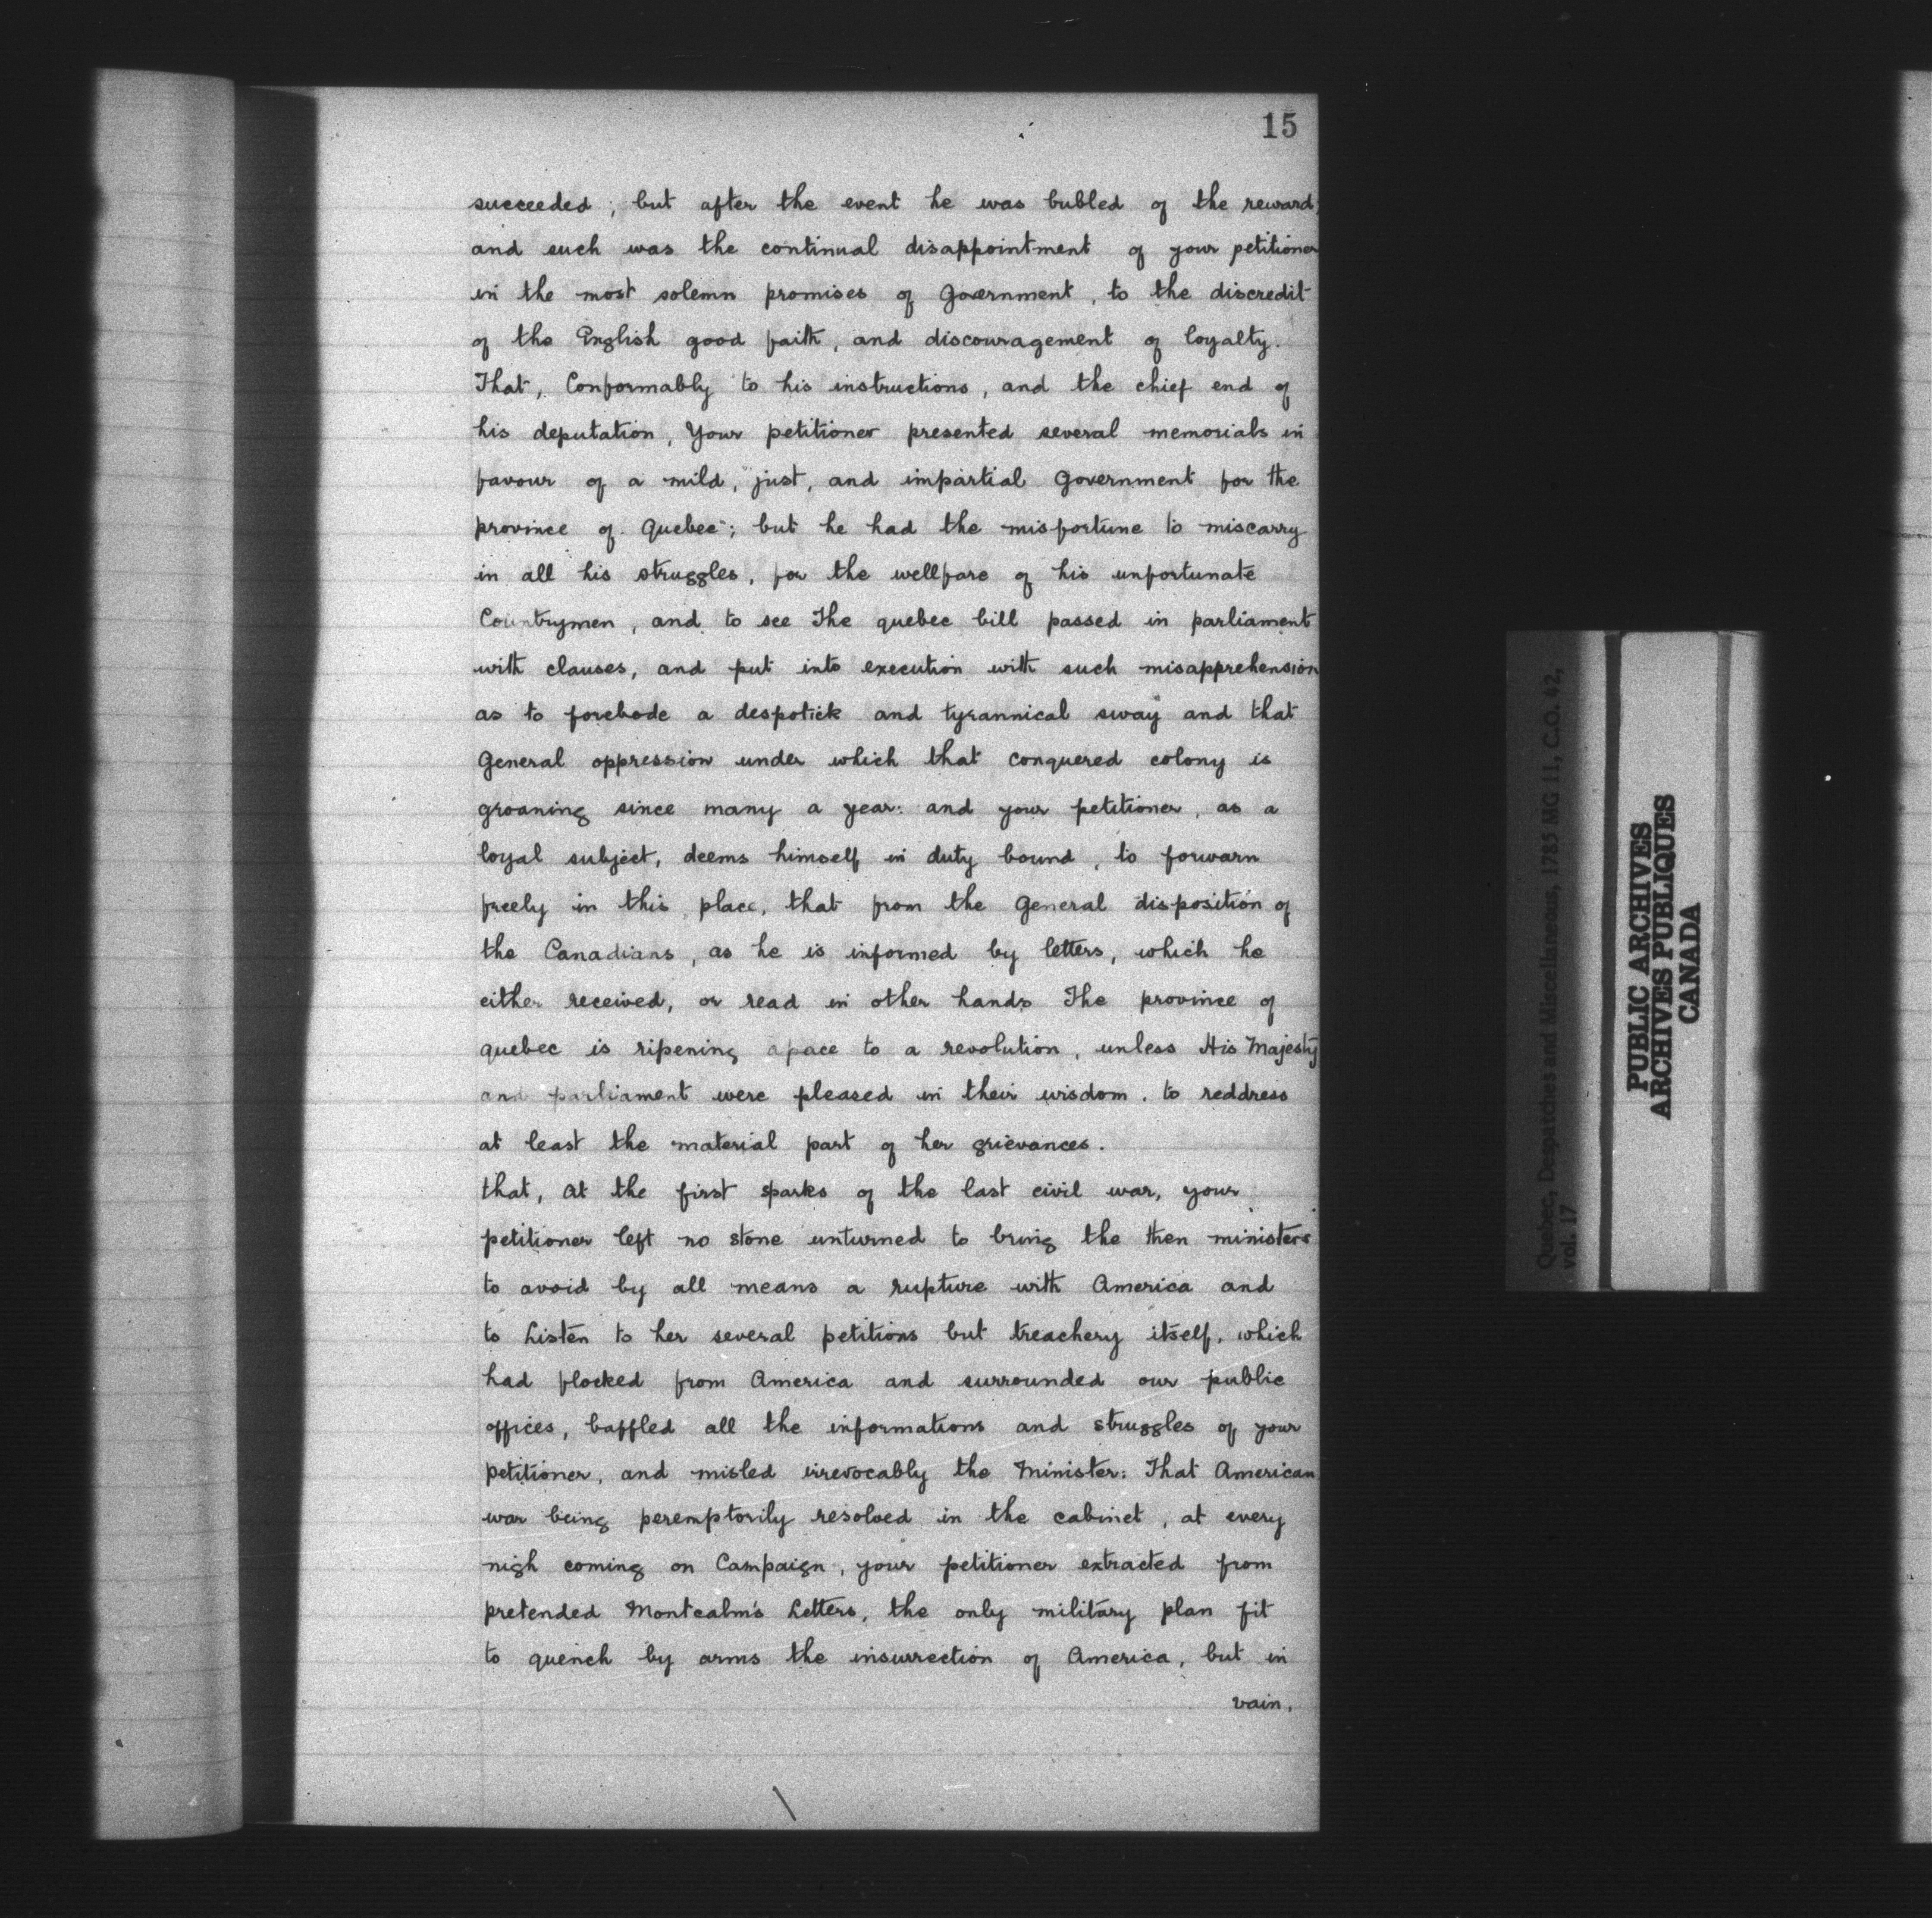 15
succeeded; but after the event he was bubled of the reward;
and such was the continual disappointment of your petitioner
in the most solemn promises of Government, to the discredit
of the English good faith, and discouragement of loyalty.
That, Conformably to his instructions, and the chief end of
his deputation, Your petitioner presented several memorials in
favour of a mild, just, and impartial Government for the
province of Quebec; but he had the misfortune to miscarry
in all his struggles, for the wellfare of his unfortunate
Countrymen, and to see The quebec bill passed in parliament
with clauses, and put into execution with such misapprehension
as to forebode a despotick and tyrannical sway and that
General oppression under which that conquered colony is
groaning since many a year: and your petitioner, as a
loyal subject, deems himself in duty bound, to forwarn
freely in this place, that from the General disposition of
the Canadians, as he is informed by letters, which he
either received, or read in other hands The province of
quebec is ripening apace to a revolution, unless His Majesty
and parliament were pleased in their wisdom, to reddress
at least the material part of her grievances.
that, at the first sparks of the last civil war, your
petitioner left no stone unturned to bring the then ministers
to avoid by all means a rupture with America and
to Listen to her several petitions but treachery itself, which
had flocked from America and surrounded our public
offices, baffled all the informations and struggles of your
petitioner, and misled irrevocably the Minister: That American
war being peremptorily resolved in the cabinet, at every
nigh coming on Campaign, your petitioner extracted from
pretended Montcalm's Letters, the only military plan fit
to quench by arms the insurrection of America, but in
vain.
Quebec, Despatches and Miscellaneous, 1785 MG 11, C.O. 42,
vol. 17
PUBLIC ARCHIVES
ARCHIVES PUBLIQUES
CANADA